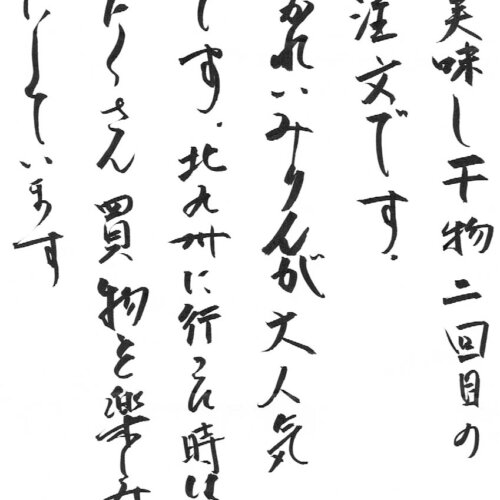 美味し干物二回目の
注文です.
かれいみりんが大人気
です.北九州に行った時は
たくさん買物を楽しみ
にしています